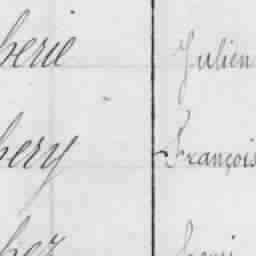 berie Julien
bery François
bez